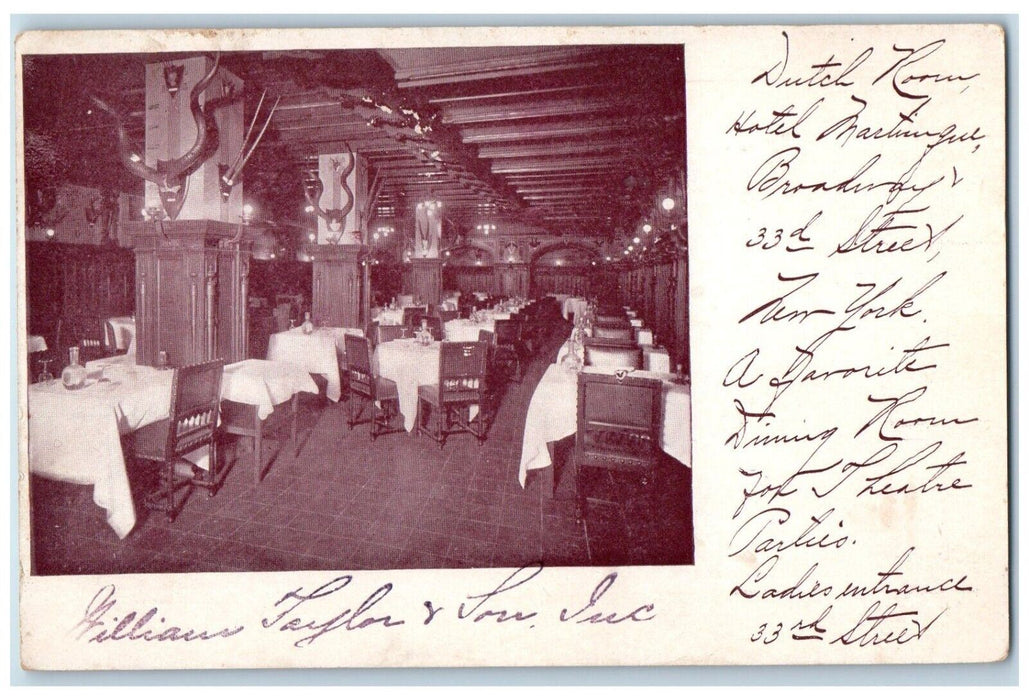 Dutch Room,
Hotel Martinque,
Broadway &
33d Street,
New York.
A Favorite
Dining Room
for Theatre
Parties.
Ladies entrance
33rd Street
William Taylor & Son, Inc